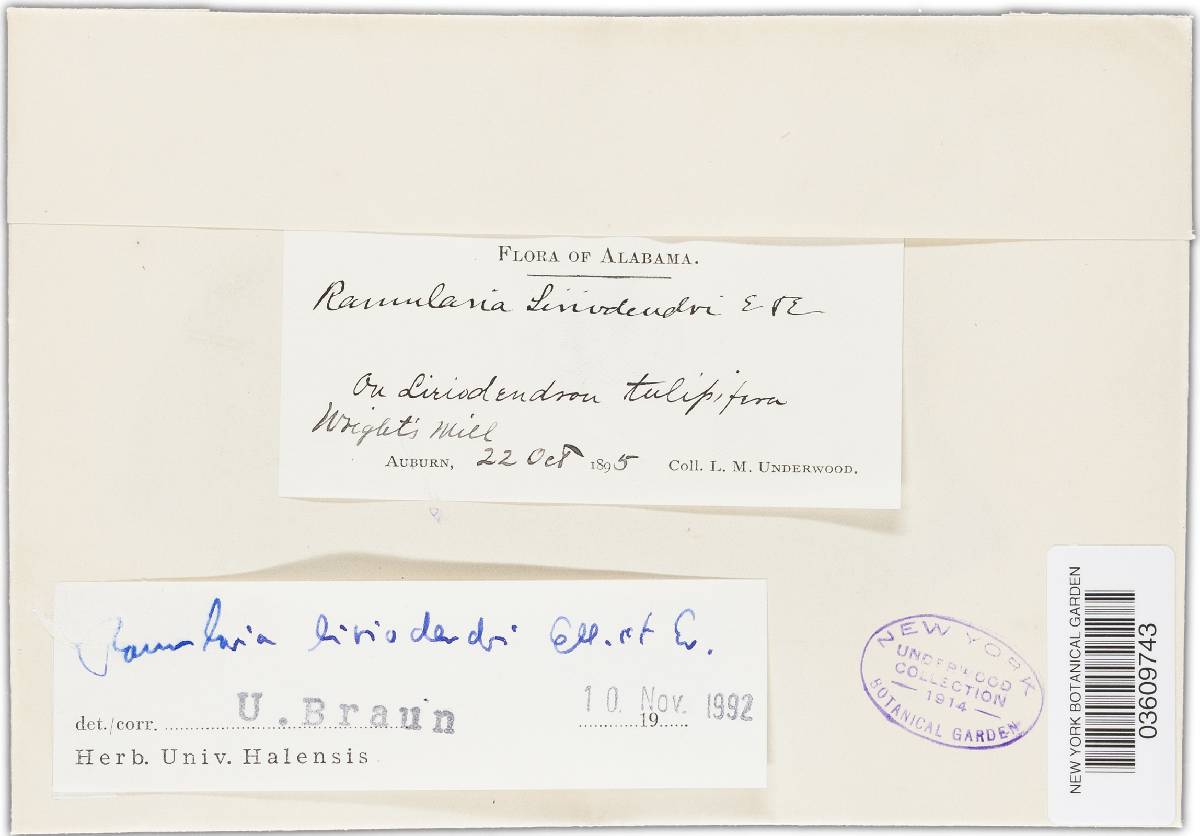 FLORA OF ALABAMA.
Ramularia Liriodendri E & E
On Liriodendron tulipifera
Wright's Mill
AUBURN, 22 Oct 1895 COLL. L. M. UNDERWOOD.
Ramularia liriodendri Ell. et Ev.
det./corr. U. Braun 10. Nov. 1992
19
Herb. Univ. Halensis
NEW YORK
UNDERWOOD
COLLECTION
— 1914 —
BOTANICAL GARDEN
NEW YORK BOTANICAL GARDEN
03609743